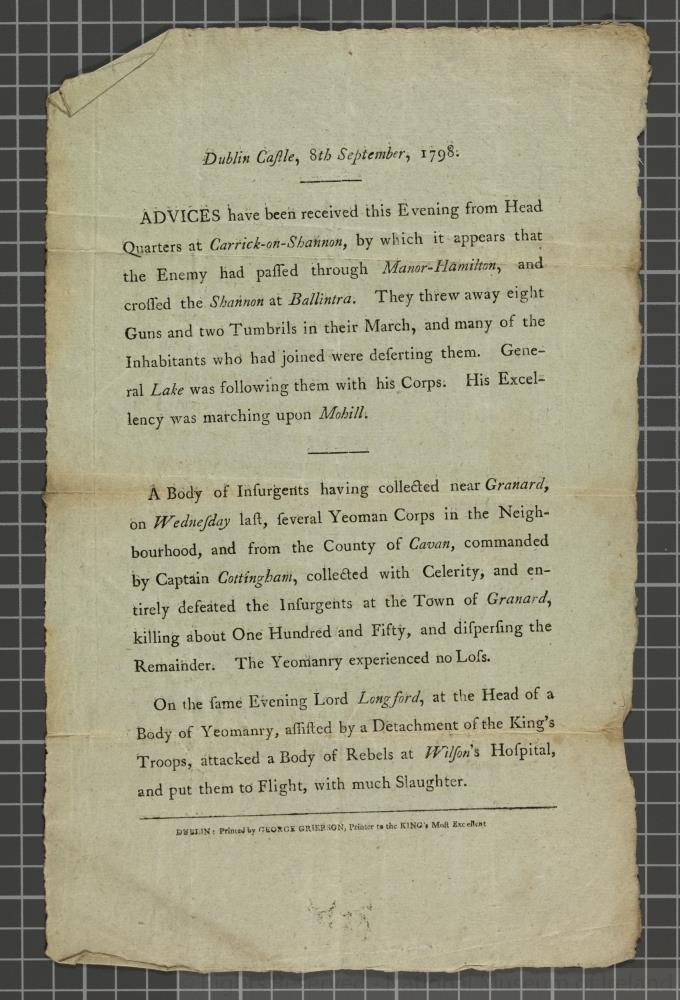 Dublin Caſtle, 8th September, 1798.
ADVICES have been received this Evening from Head
Quarters at Carrick-on-Shannon, by which it appears that
the Enemy had paſſed through Manor-Hamilton, and
croſſed the Shannon at Ballintra. They threw away eight
Guns and two Tumbrils in their March, and many of the
Inhabitants who had joined were deſerting them. Gene-
ral Lake was following them with his Corps. His Excel-
lency was marching upon Mohill.
A Body of Inſurgents having collected near Granard,
on Wedneſday laſt, ſeveral Yeoman Corps in the Neigh-
bourhood, and from the County of Cavan, commanded
by Captain Cottingham, collected with Celerity, and en-
tirely defeated the Inſurgents at the Town of Granard,
killing about One Hundred and Fifty, and diſperſing the
Remainder. The Yeomanry experienced no Loſs.
On the ſame Evening Lord Longford, at the Head of a
Body of Yeomanry, aſſiſted by a Detachment of the King's
Troops, attacked a Body of Rebels at Wilſon's Hoſpital,
and put them to Flight, with much Slaughter.
DUBLIN: Printed by GEORGE GRIERSON, Printer to the KING's Moſt Excellent